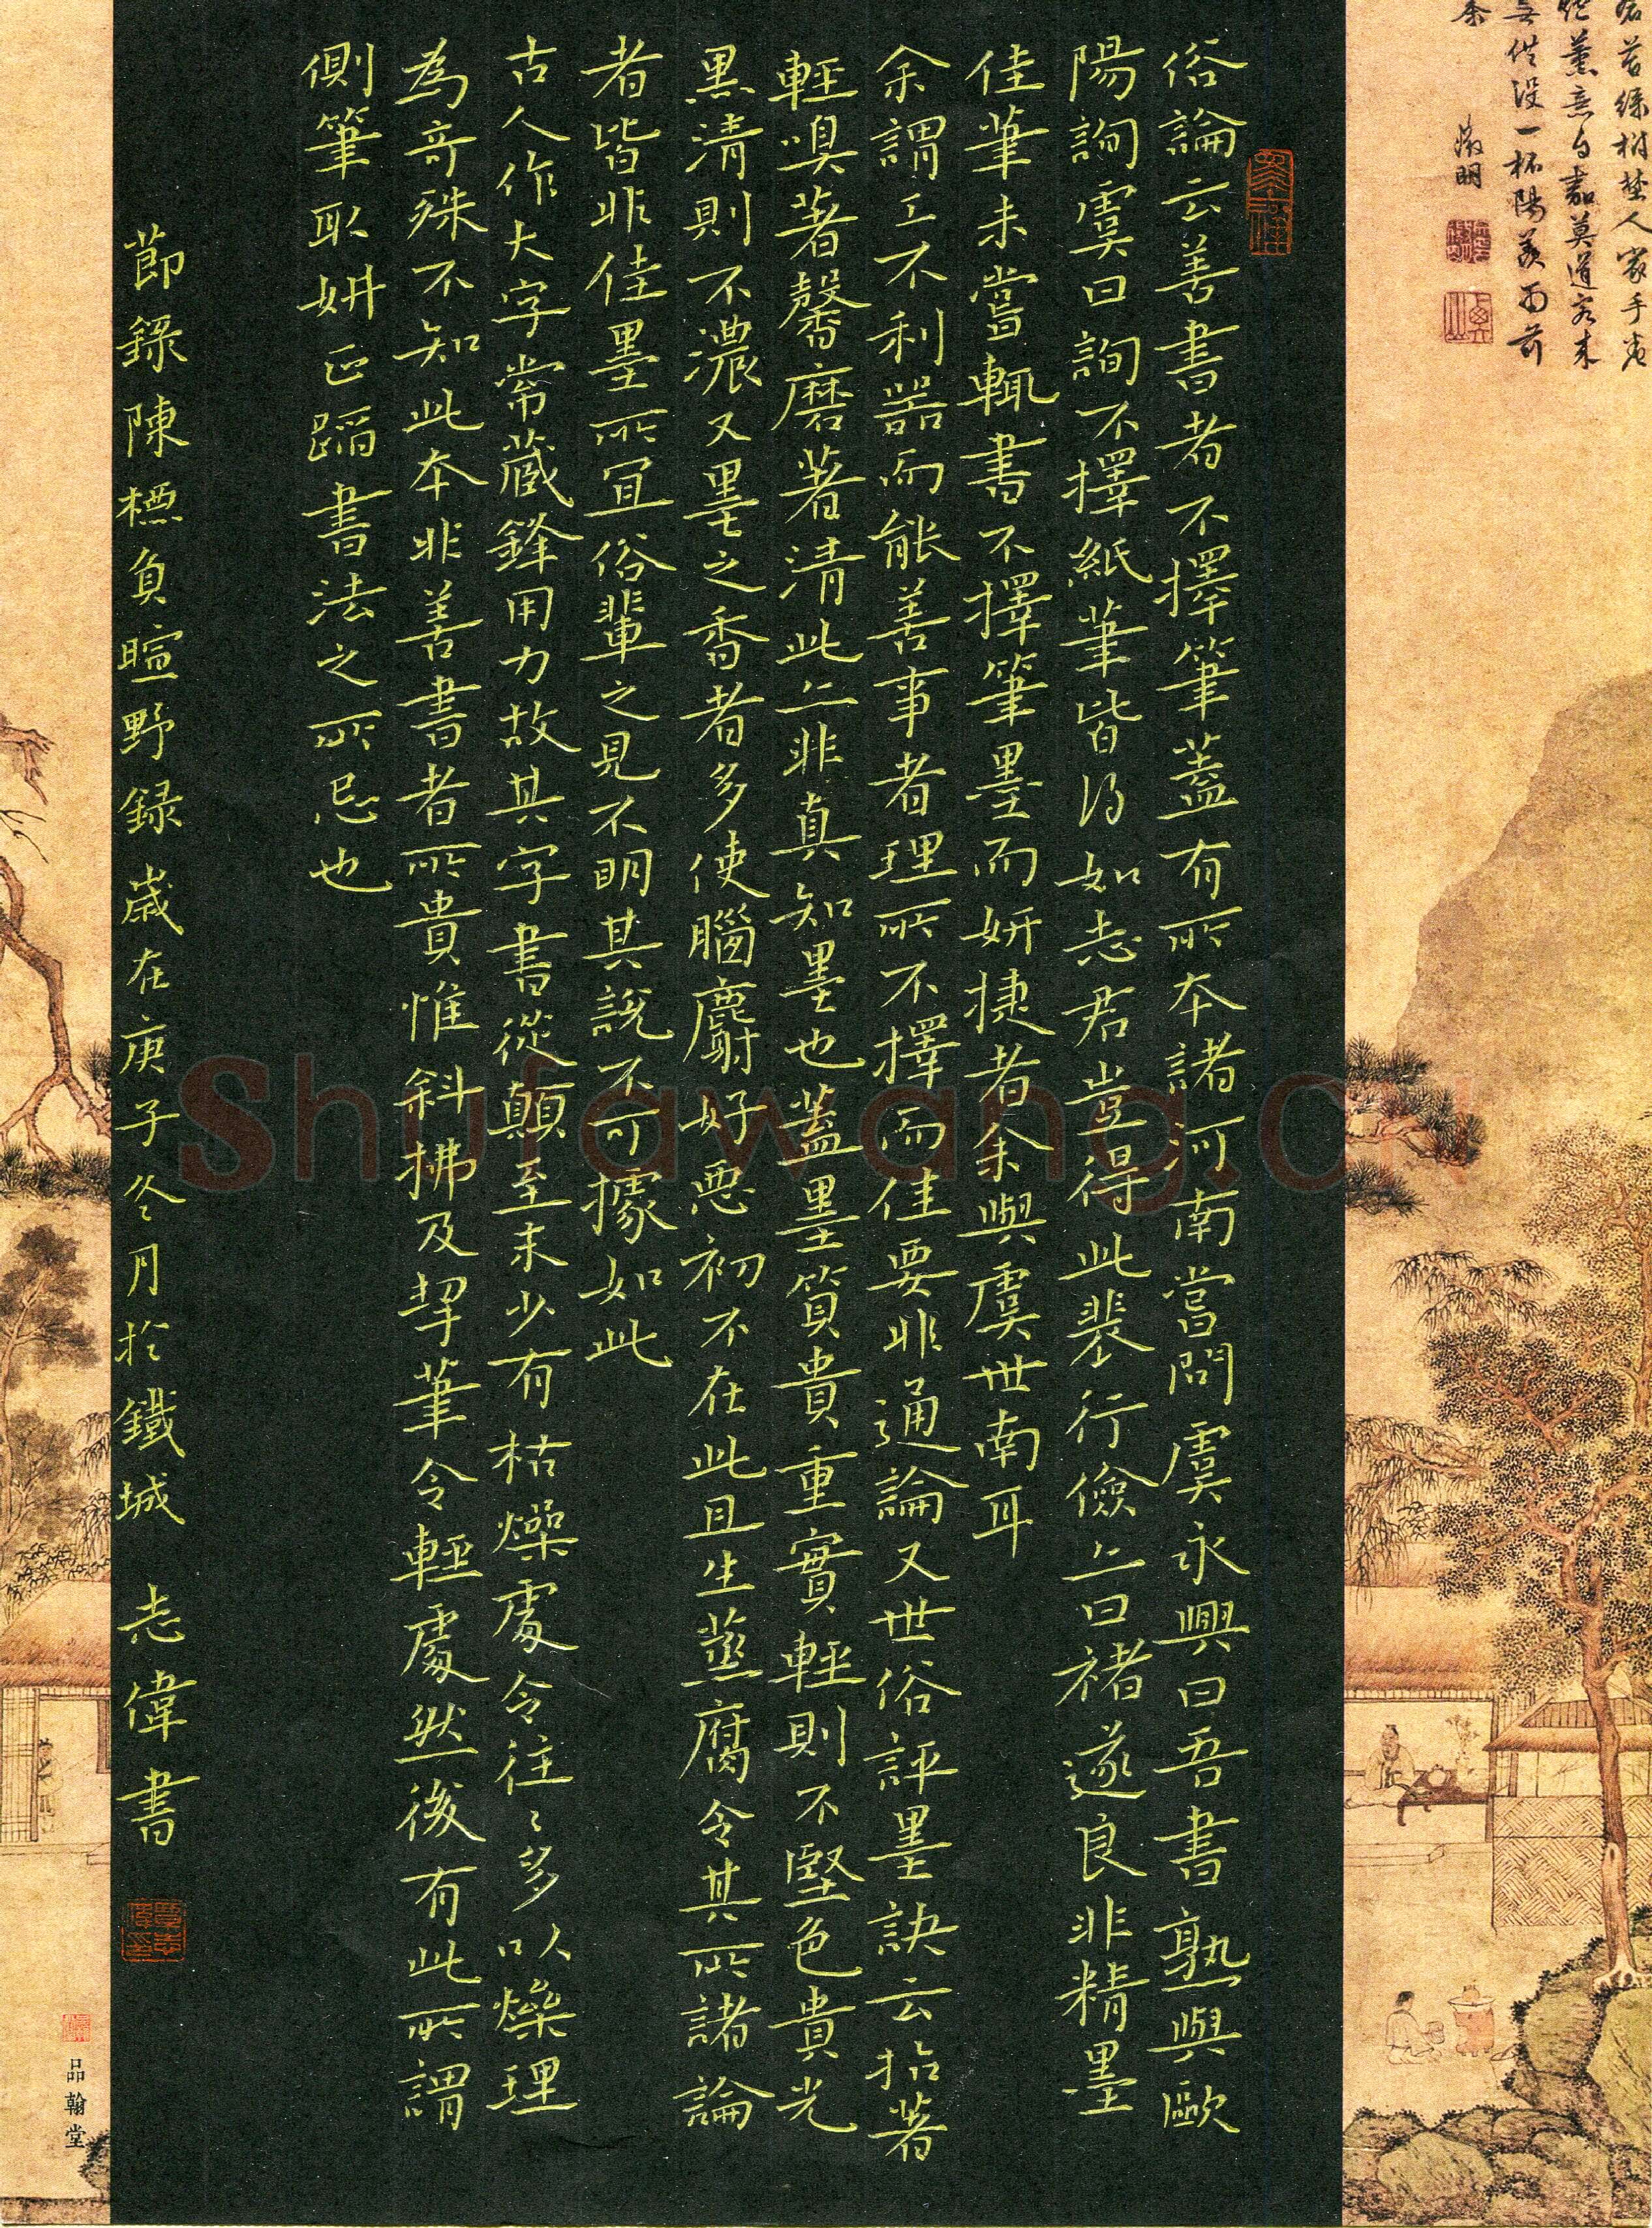 俗論云善書者不擇筆蓋有所本諸河南嘗問虞永興曰吾書孰與歐
陽詢虞曰詢不擇紙筆皆得如志君豈得此裴行儉亦曰褚遂良非精墨
佳筆未嘗輒書不擇筆墨而妍捷者余與虞世南耳
余謂工不利器而能善事者理所不擇而佳要非通論又世俗評墨訣云拈著
輕嗅著馨磨著清此亦非真知墨也蓋墨質貴重實輕則不堅色貴光
黑清則不濃又墨之香者多使腦麝好惡初不在此且生蒸腐令其所諸論
者皆非佳墨所宜俗輩之見不明其說不可據如此
古人作大字常藏鋒用力故其字書從顛至末少有枯燥處今往〻多以燥理
為奇殊不知此本非善書者所貴惟斜拂及挈筆令輕處然後有此所謂
側筆取妍正蹈書法之所忌也
節錄陳槱負暄野錄歲在庚子冬月於鐵城 志偉書
品翰堂
徵明
Shufawang.cn